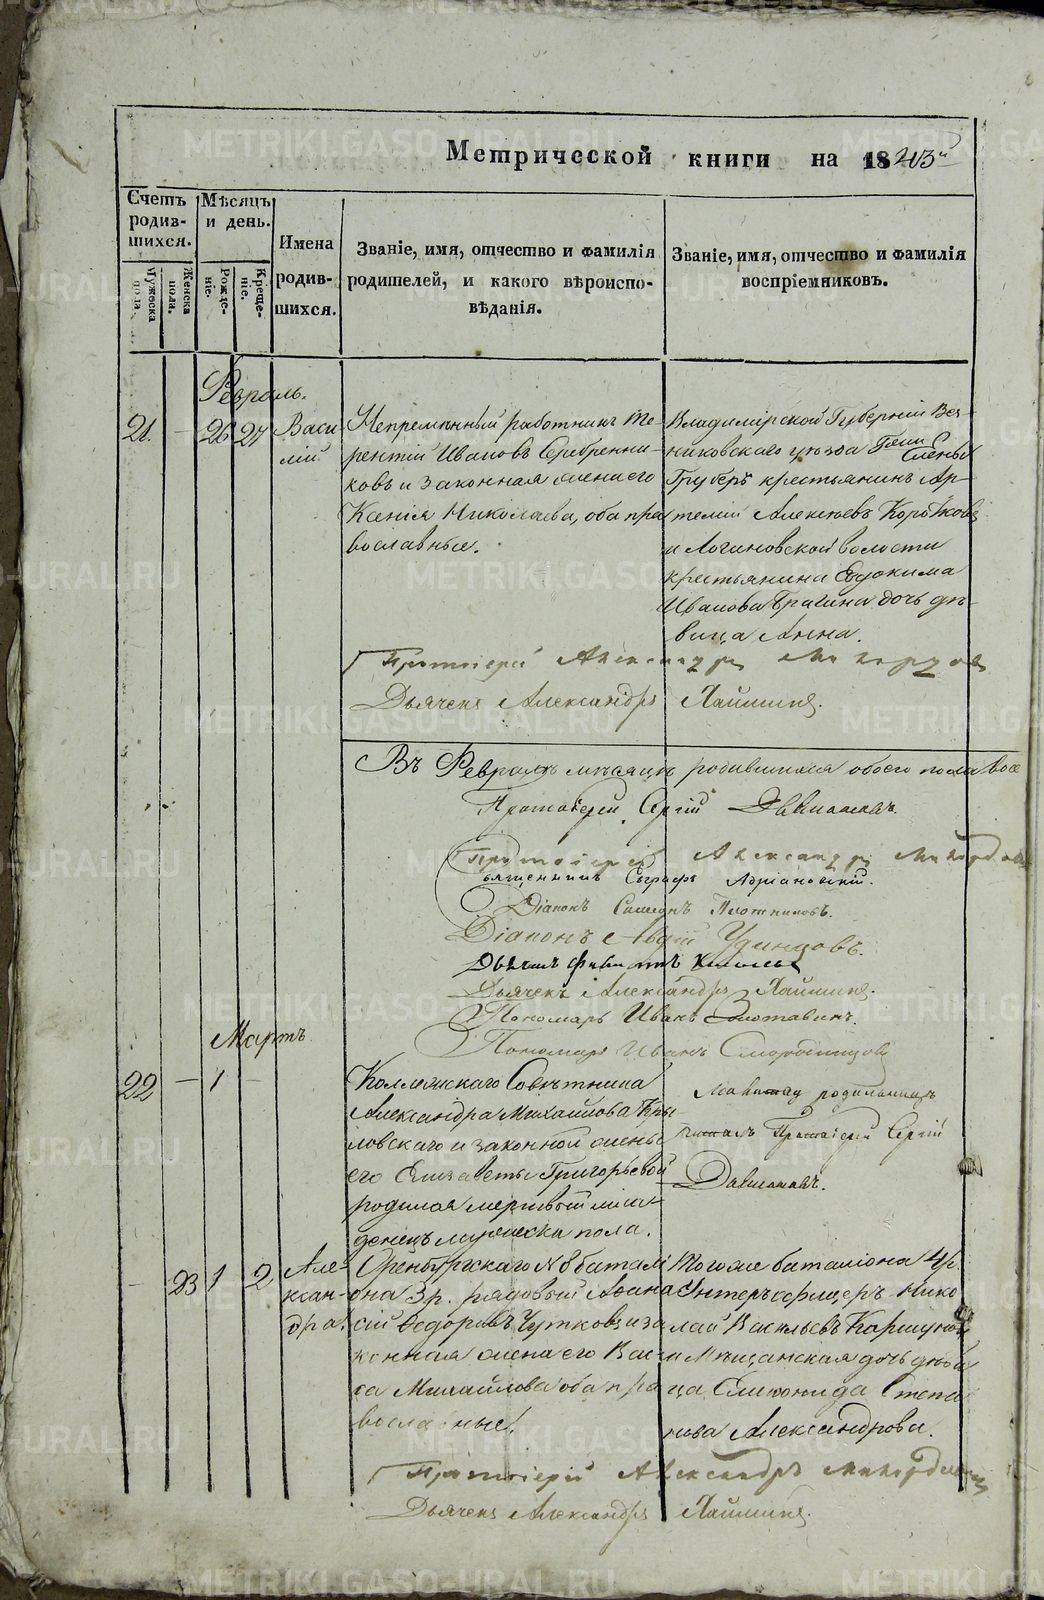 Метрической книги на 18
Счетъ родив-шихся.
Мужеска пола.
Женска пола.
Мѣсяцъ и день.
Рожде-нiе.
Креще-нiе.
Имена родив-шихся.
Званiе, имя, отчество и фамилiя
родителей, и какого вѣроиспо-
вѣданiя.
Званiе, имя, отчество и фамилiя
воспрiемниковъ.
Февраль.
21. 26 27 Васи-
лiй
Непремѣнный работникъ Те-
рентiй Ивановъ Серебренни-
ковъ и законная жена его
Ксенiя Николаева, оба пра-
вославные.
Владимiрской Губернiи Вяз-
никовскаго уѣзда
крестьянинъ Ар-
темiй Алексѣевъ
и Логиновской волости
крестьянина Евдокима
Иванова Брагина дочь дѣ-
вица Анна.
Протоiерей Александръ
Дьячекъ Александръ
Въ Февралѣ мѣсяцѣ родившихся обоего пола
Протоiерей Сергiй
Протоiерей Александръ
Священникъ
Дiаконъ Плотниковъ.
Дiаконъ Авдiй Удинцовъ.
Дьячекъ Александръ
Пономарь Иванъ Золотавинъ.
Пономарь Иванъ Смородинцовъ
Мартъ
22 — 1 —
Коллежскаго Совѣтника
Александра Михайлова Кры-
ловскаго и законной жены
его Елизаветы Григорьевой
родился мертвый мла-
денецъ мужеска пола.
Молитву родильницѣ
читалъ Протоiерей Сергiй
— 23 1 2 Але-
ксан-
дра.
Оренбургскаго № 8 баталi-
она 3 р. рядовый Афана-
сiй Федоровъ Чутковъ и за-
конная жена его Васи-
са Михайлова оба пра-
вославные.
Того же баталiона 4 р.
Унтеръ офицеръ Нико-
лай Васильевъ
и Мѣщанская дочь дѣви-
ца Еликонида Степа-
нова Александрова.
Протоiерей Александръ
Дьячекъ Александръ
METRIKI.GASO-URAL.RU